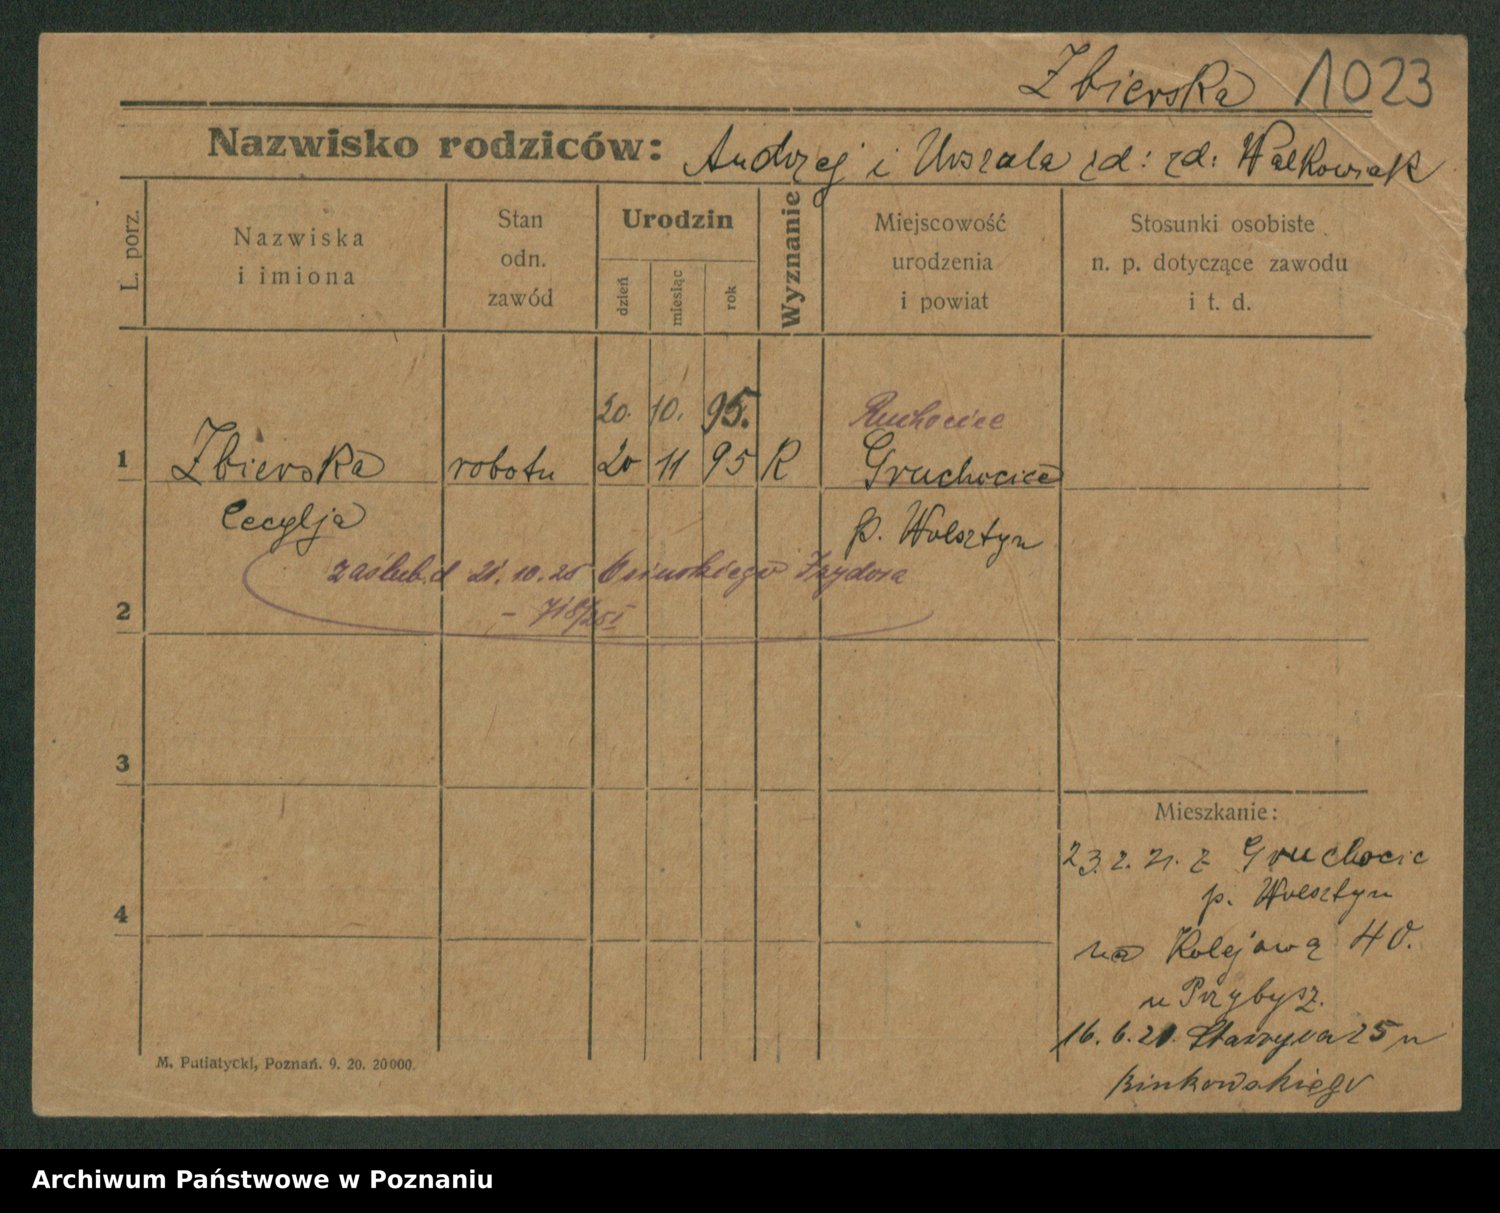 Zbierska 1023
Nazwisko rodziców: Andrzej i Urszula zd: zd: Walkowiak
L. porz.
Nazwiska
i imiona
Stan
odn.
zawód
Urodzin
dzień
miesiąc
rok
Wyznanie
Miejscowość
urodzenia
i powiat
Stosunki osobiste
n. p. dotyczące zawodu
i t. d.
20. 10. 95. Ruchocice
1 Zbierska robotn 20 11 95 R Gruchocice
Cecylja p. Wolsztyn
zaślub. d 21. 10. 25 Osinskiego Izydora
2 – 718/25 I
3
Mieszkanie:
23. 2. 21. z Gruchocic
p. Wolsztyn
4
na Kolejową 40.
u Przybysz.
16. 6. 21. 25 u
Binkowskiego
M. Putiatycki, Poznań. 9. 20. 20000.
Archiwum Państwowe w Poznaniu